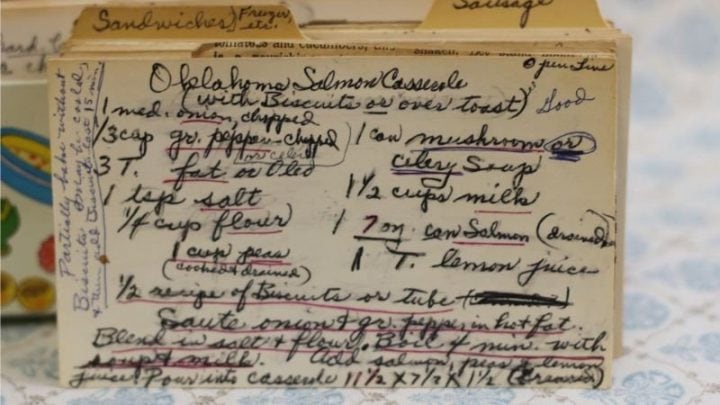 Sandwiches, Freezer, etc.
Sausage
tomatoes and cucumbers, this
Oklahoma Salmon Casserole
(with Biscuits or over toast)
Good
1 med. onion, chopped
1/3 cup gr. pepper chopped
(or celery)
3 T. fat or Oleo
1 tsp salt
1/4 cup flour
1 cup peas
(cooked & drained)
1 can mushroom or
celery Soup
1 1/2 cups milk
1 7 oz. can Salmon (drained)
1 T. lemon juice
1/2 recipe of Biscuits or tube
Saute onion & gr. pepper in hot fat.
Blend in salt & flour. Boil 4 min. with
soup & milk. Add salmon, peas & lemon
juice. Pour into casserole 11 1/2 X 7 1/2 X 1 1/2 (Greased)
Partially bake without
Biscuits (may be cold)
& then add Biscuits last 15 min.